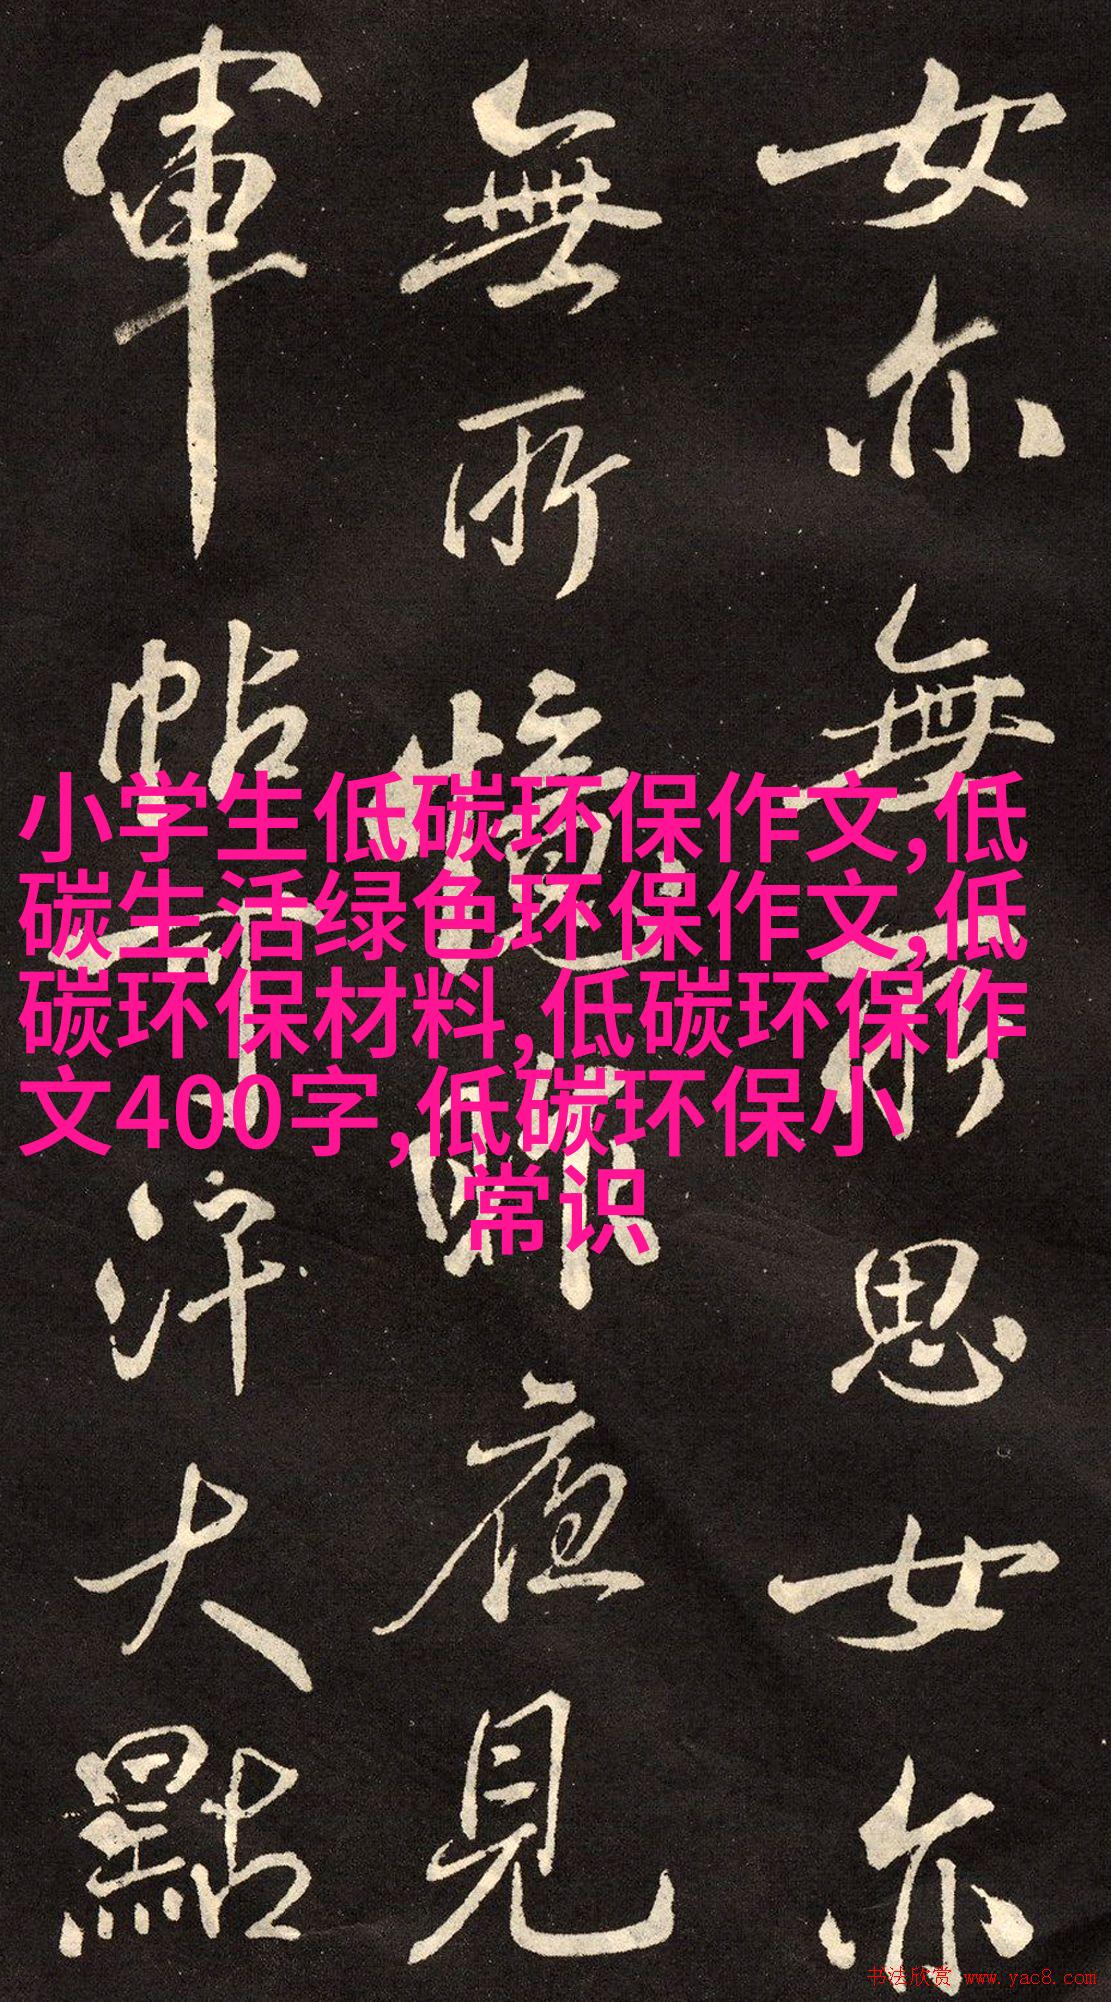 女亦無所思女亦
無所憶昨夜見
軍帖可汗大點
小学生低碳环保作文,低
碳生活绿色环保作文,低
碳环保材料,低碳环保作
文400字,低碳环保小
常识
书法欣赏 www.yac8.com